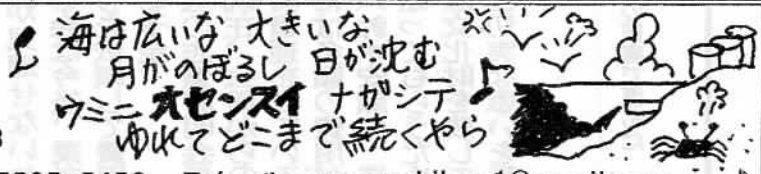 海は広いな 大きいな
月がのぼるし 日が沈む
ウミニ オセンスイ ナガシテ
ゆれてどこまで続くやら